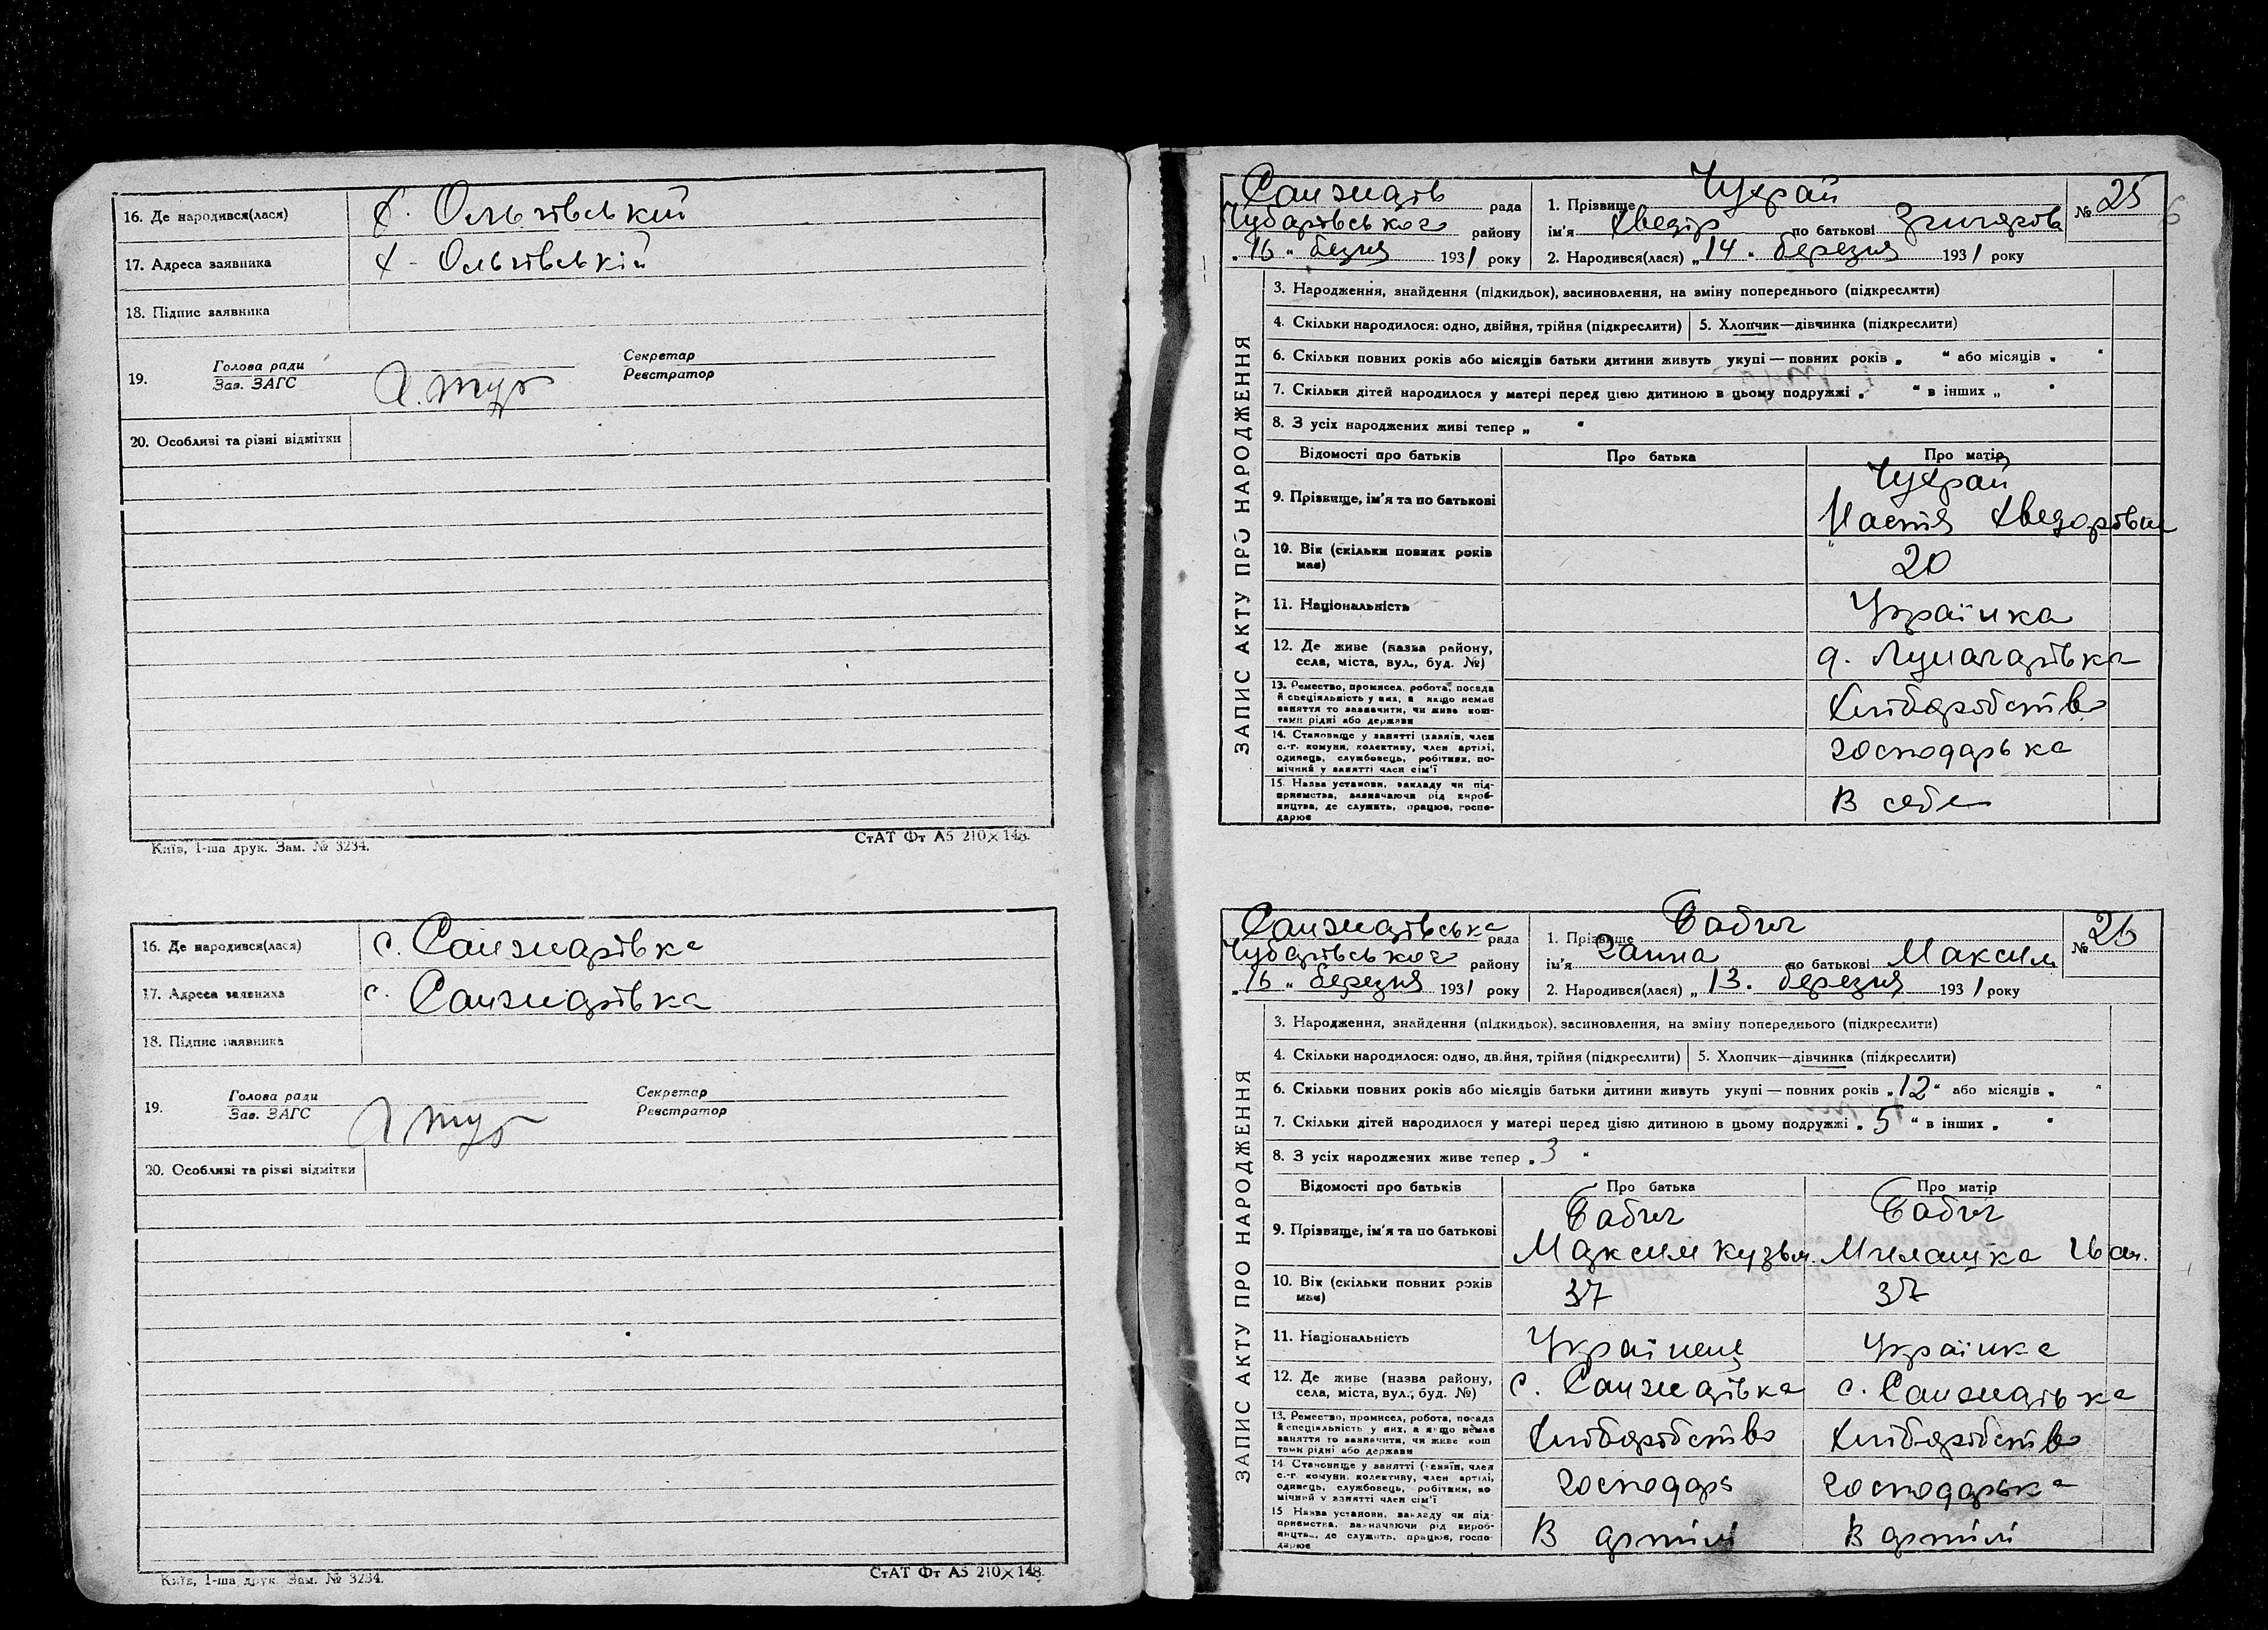 16. Де народився(лася) х. Ольгівський
17. Адреса заявника х. Ольгівській
18. Підпис заявника
19. Голова ради
Зав. ЗАГС
Секретар
Реєстратор
20. Особливі та різні відмітки
Київ, 1-ша друк. Зам. № 3234.
СтАТ Фт А5 210×148.
16. Де народився(лася) с. Санжарівка
17. Адреса заявника с. Санжарівка
18. Підпис заявника
19. Голова ради
Зав. ЗАГС
Секретар
Реєстратор
20. Особливі та різні відмітки
Київ, 1-ша друк. Зам. № 3234.
СтАТ Фт А5 210×148.
ЗАПИС АКТУ ПРО НАРОДЖЕННЯ
Санжарів рада
Чубарівського району
„16“ безня 1931 року
1. Прізвище Чухрай
ім'я Хведір по батькові
№ 25
2. Народився(лася) „14“ березня 1931 року
3. Народження, знайдення (підкидьок), засиновлення, на зміну попереднього (підкреслити)
4. Скільки народилося: одно, двійня, трійня (підкреслити) 5. Хлопчик—дівчинка (підкреслити)
6. Скільки повних років або місяців батьки дитини живуть укупі — повних років „ “ або місяців „ “
7. Скільки дітей народилося у матері перед цією дитиною в цьому подружжі „ “ в інших „ “
8. З усіх народжених живі тепер „ “
Відомості про батьків Про батька Про матір
9. Прізвище, ім'я та по батькові Чухрай
Настя Хведорівна
10. Вік (скільки повних років має) 20
11. Національність Українка
12. Де живе (назва району, села, міста, вул., буд. №) Луначарівка
13. Ремество, промисел, робота, посада й спеціяльність у них, а якщо немає заняття то зазначити, чи живе коштами рідні або держави Хліборобство
14. Становище у занятті (хазяїн, член с.-г. комуни, колективу, член артілі, одинець, службовець, робітник, помічний у занятті член сім'ї господарька
15. Назва установи, закладу чи підприємства, зазначаючи рід виробництва, де служить, працює, господарює В себе
ЗАПИС АКТУ ПРО НАРОДЖЕННЯ
Санжарівська рада
Чубарівського району
„16“ березня 1931 року
1. Прізвище Бабич
ім'я Ганна по батькові Максим
№ 26
2. Народився(лася) „13. березня 1931 року
3. Народження, знайдення (підкидьок), засиновлення, на зміну попереднього (підкреслити)
4. Скільки народилося: одно, двійня, трійня (підкреслити) 5. Хлопчик—дівчинка (підкреслити)
6. Скільки повних років або місяців батьки дитини живуть укупі — повних років „12“ або місяців „ “
7. Скільки дітей народилося у матері перед цією дитиною в цьому подружжі „5“ в інших „ “
8. З усіх народжених живе тепер „3“
Відомості про батьків Про батька Про матір
9. Прізвище, ім'я та по батькові Бабич Бабич
Максим Кузьм. Милашка Иван.
10. Вік (скільки повних років має) 37 37
11. Національність Українець Українка
12. Де живе (назва району, села, міста, вул., буд. №) с. Санжарівка с. Санжарівка
13. Ремество, промисел, робота, посада й спеціяльність у них, а якщо немає заняття то зазначити, чи живе коштами рідні або держави Хліборобство Хліборобство
14. Становище у занятті (хазяїн, член с.-г. комуни, колективу, член артілі, одинець, службовець, робітник, помічний у занятті член сім'ї господарь господарька
15. Назва установи, закладу чи підприємства, зазначаючи рід виробництва, де служить, працює, господарює В артілі В артілі